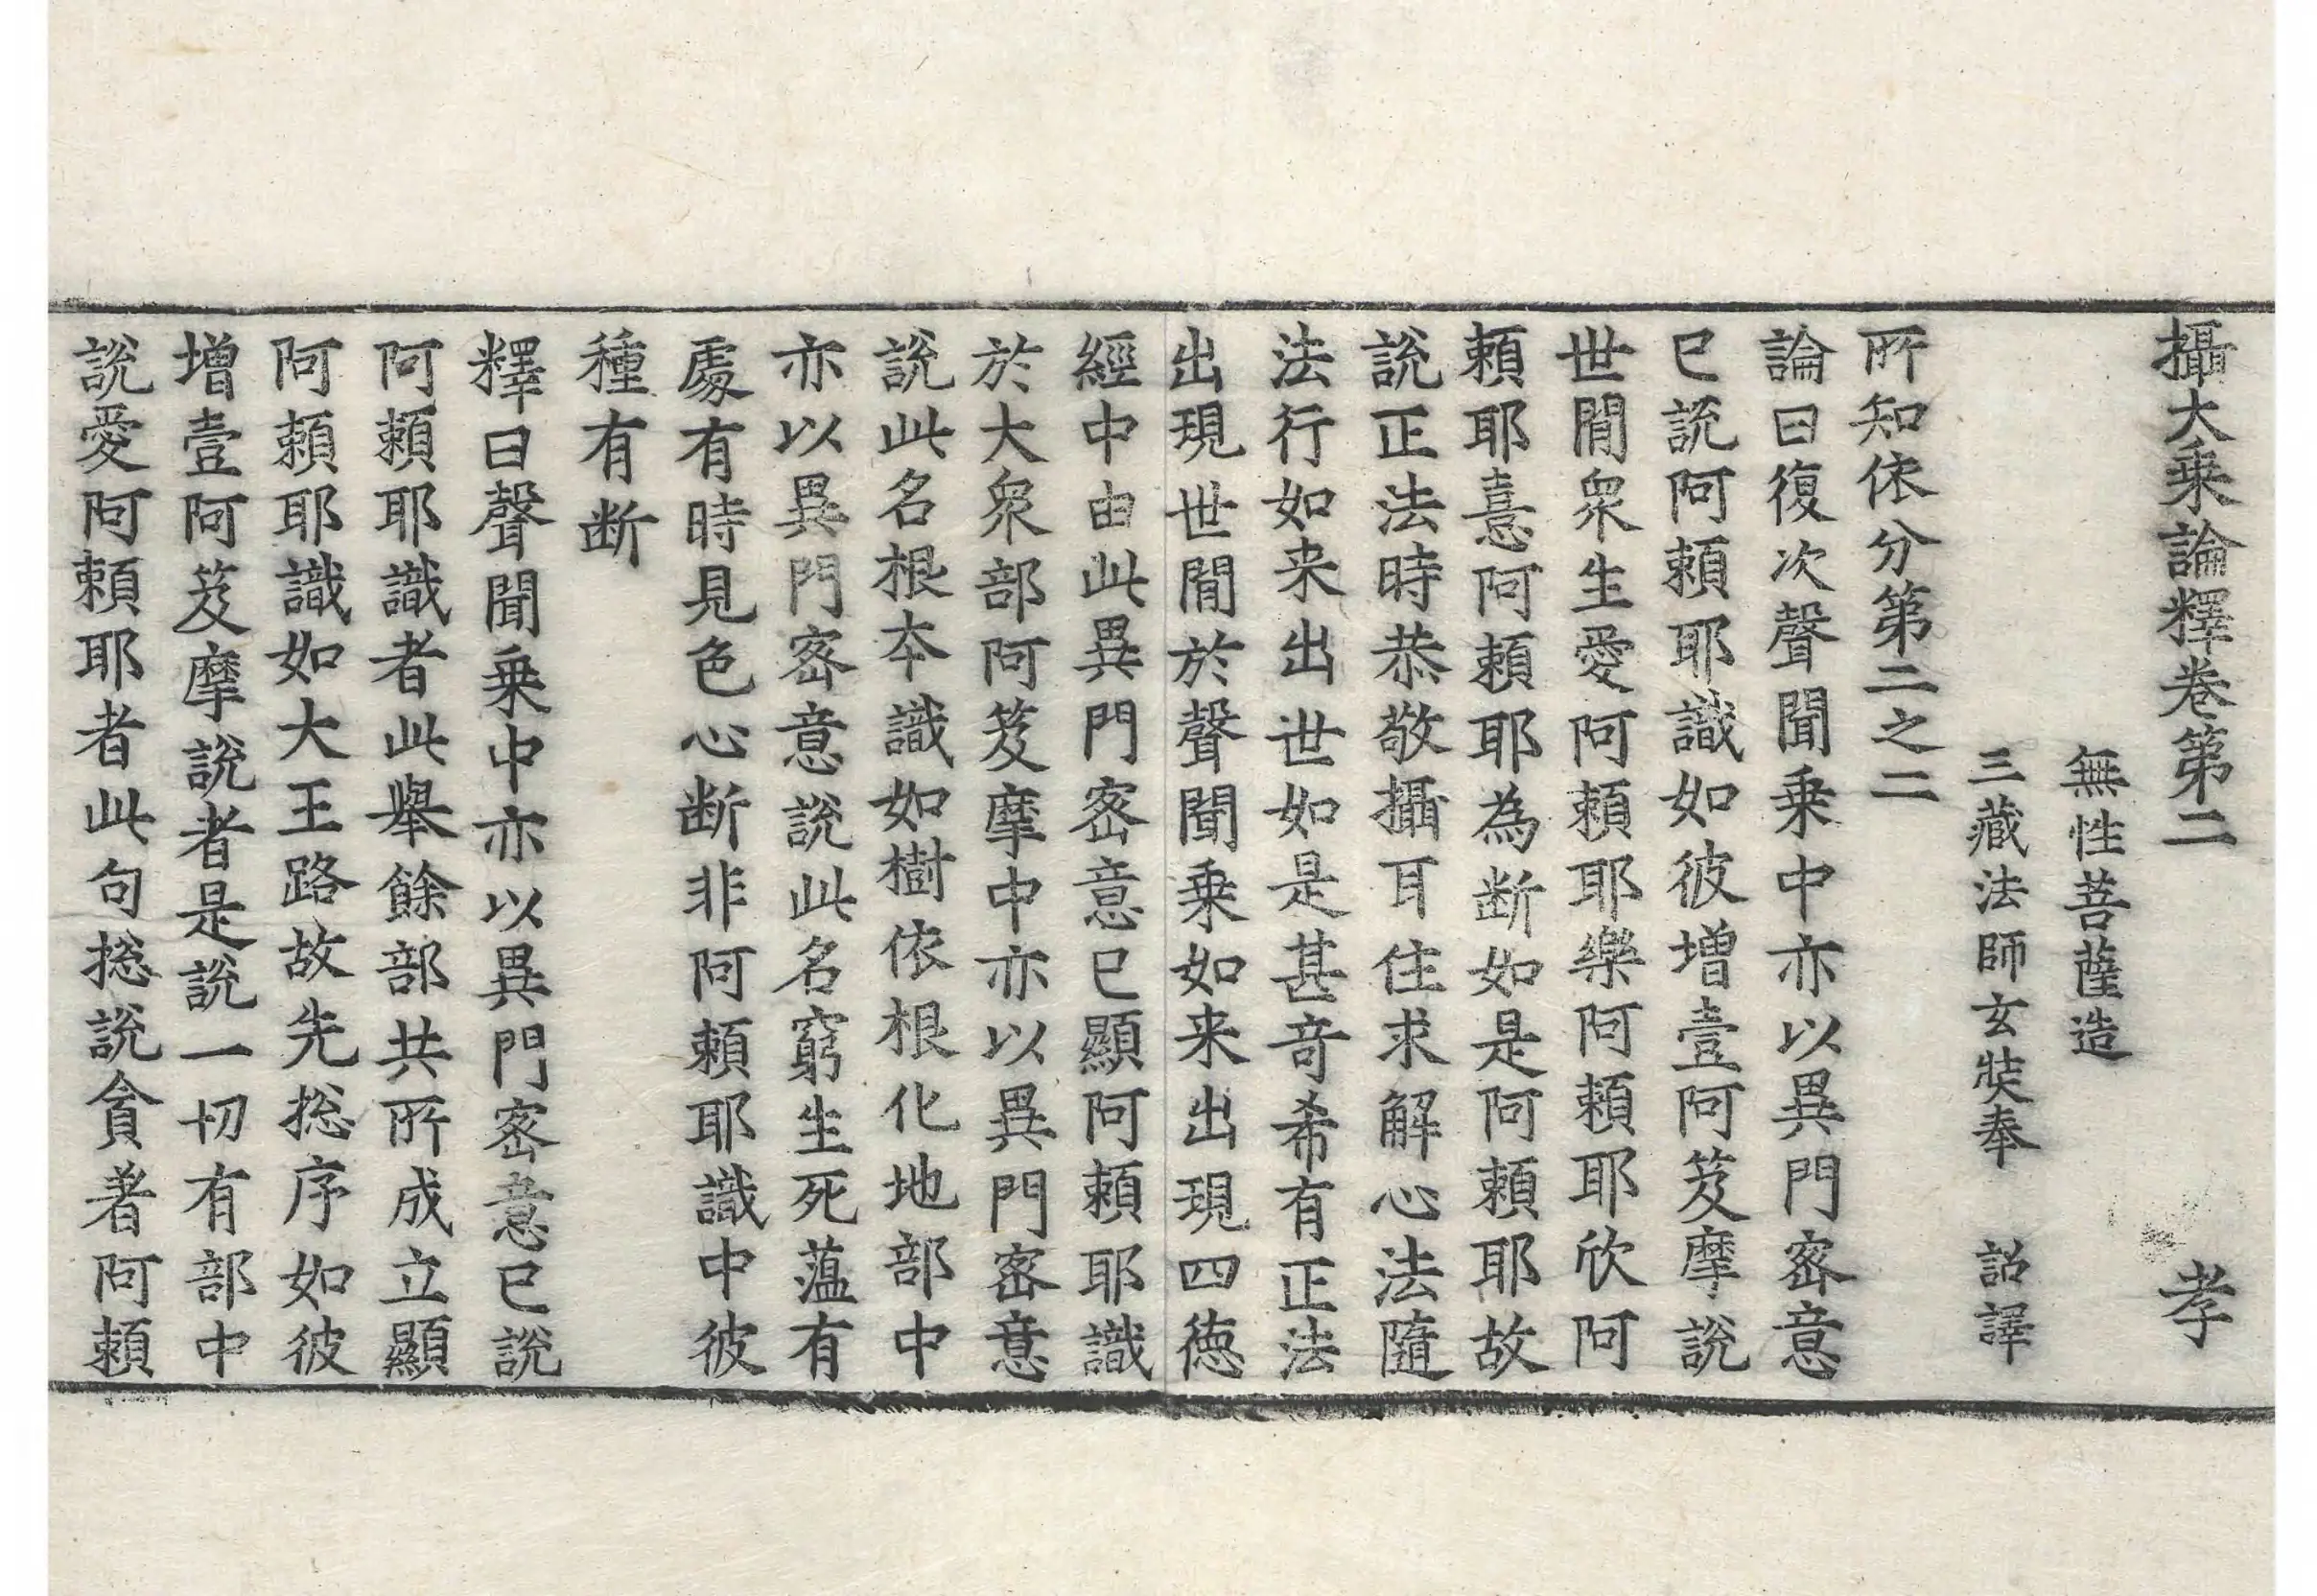 攝大乗論釋卷第二 孝
無性菩薩造
三藏法師玄奘奉 詔譯
所知依分第二之二
論曰復次聲聞乗中亦以異門密意
已說阿頼耶識如彼增壹阿笈摩說
世間衆生愛阿頼耶樂阿頼耶欣阿
頼耶憙阿頼耶為断如是阿頼耶故
說正法時恭敬攝耳住求解心法隨
法行如来出世如是甚竒希有正法
出現世間於聲聞乗如来出現四徳
經中由此異門密意已顯阿頼耶識
於大衆部阿笈摩中亦以異門密意
說此名根本識如樹依根化地部中
亦以異門密意說此名窮生死蕰有
處有時見色心断非阿頼耶識中彼
種有断
釋曰聲聞乗中亦以異門密意已說
阿頼耶識者此舉餘部共所成立顯
阿頼耶識如大王路故先揔序如彼
增壹阿笈摩說者是說一切有部中
說愛阿頼耶者此句揔說貪著阿頼